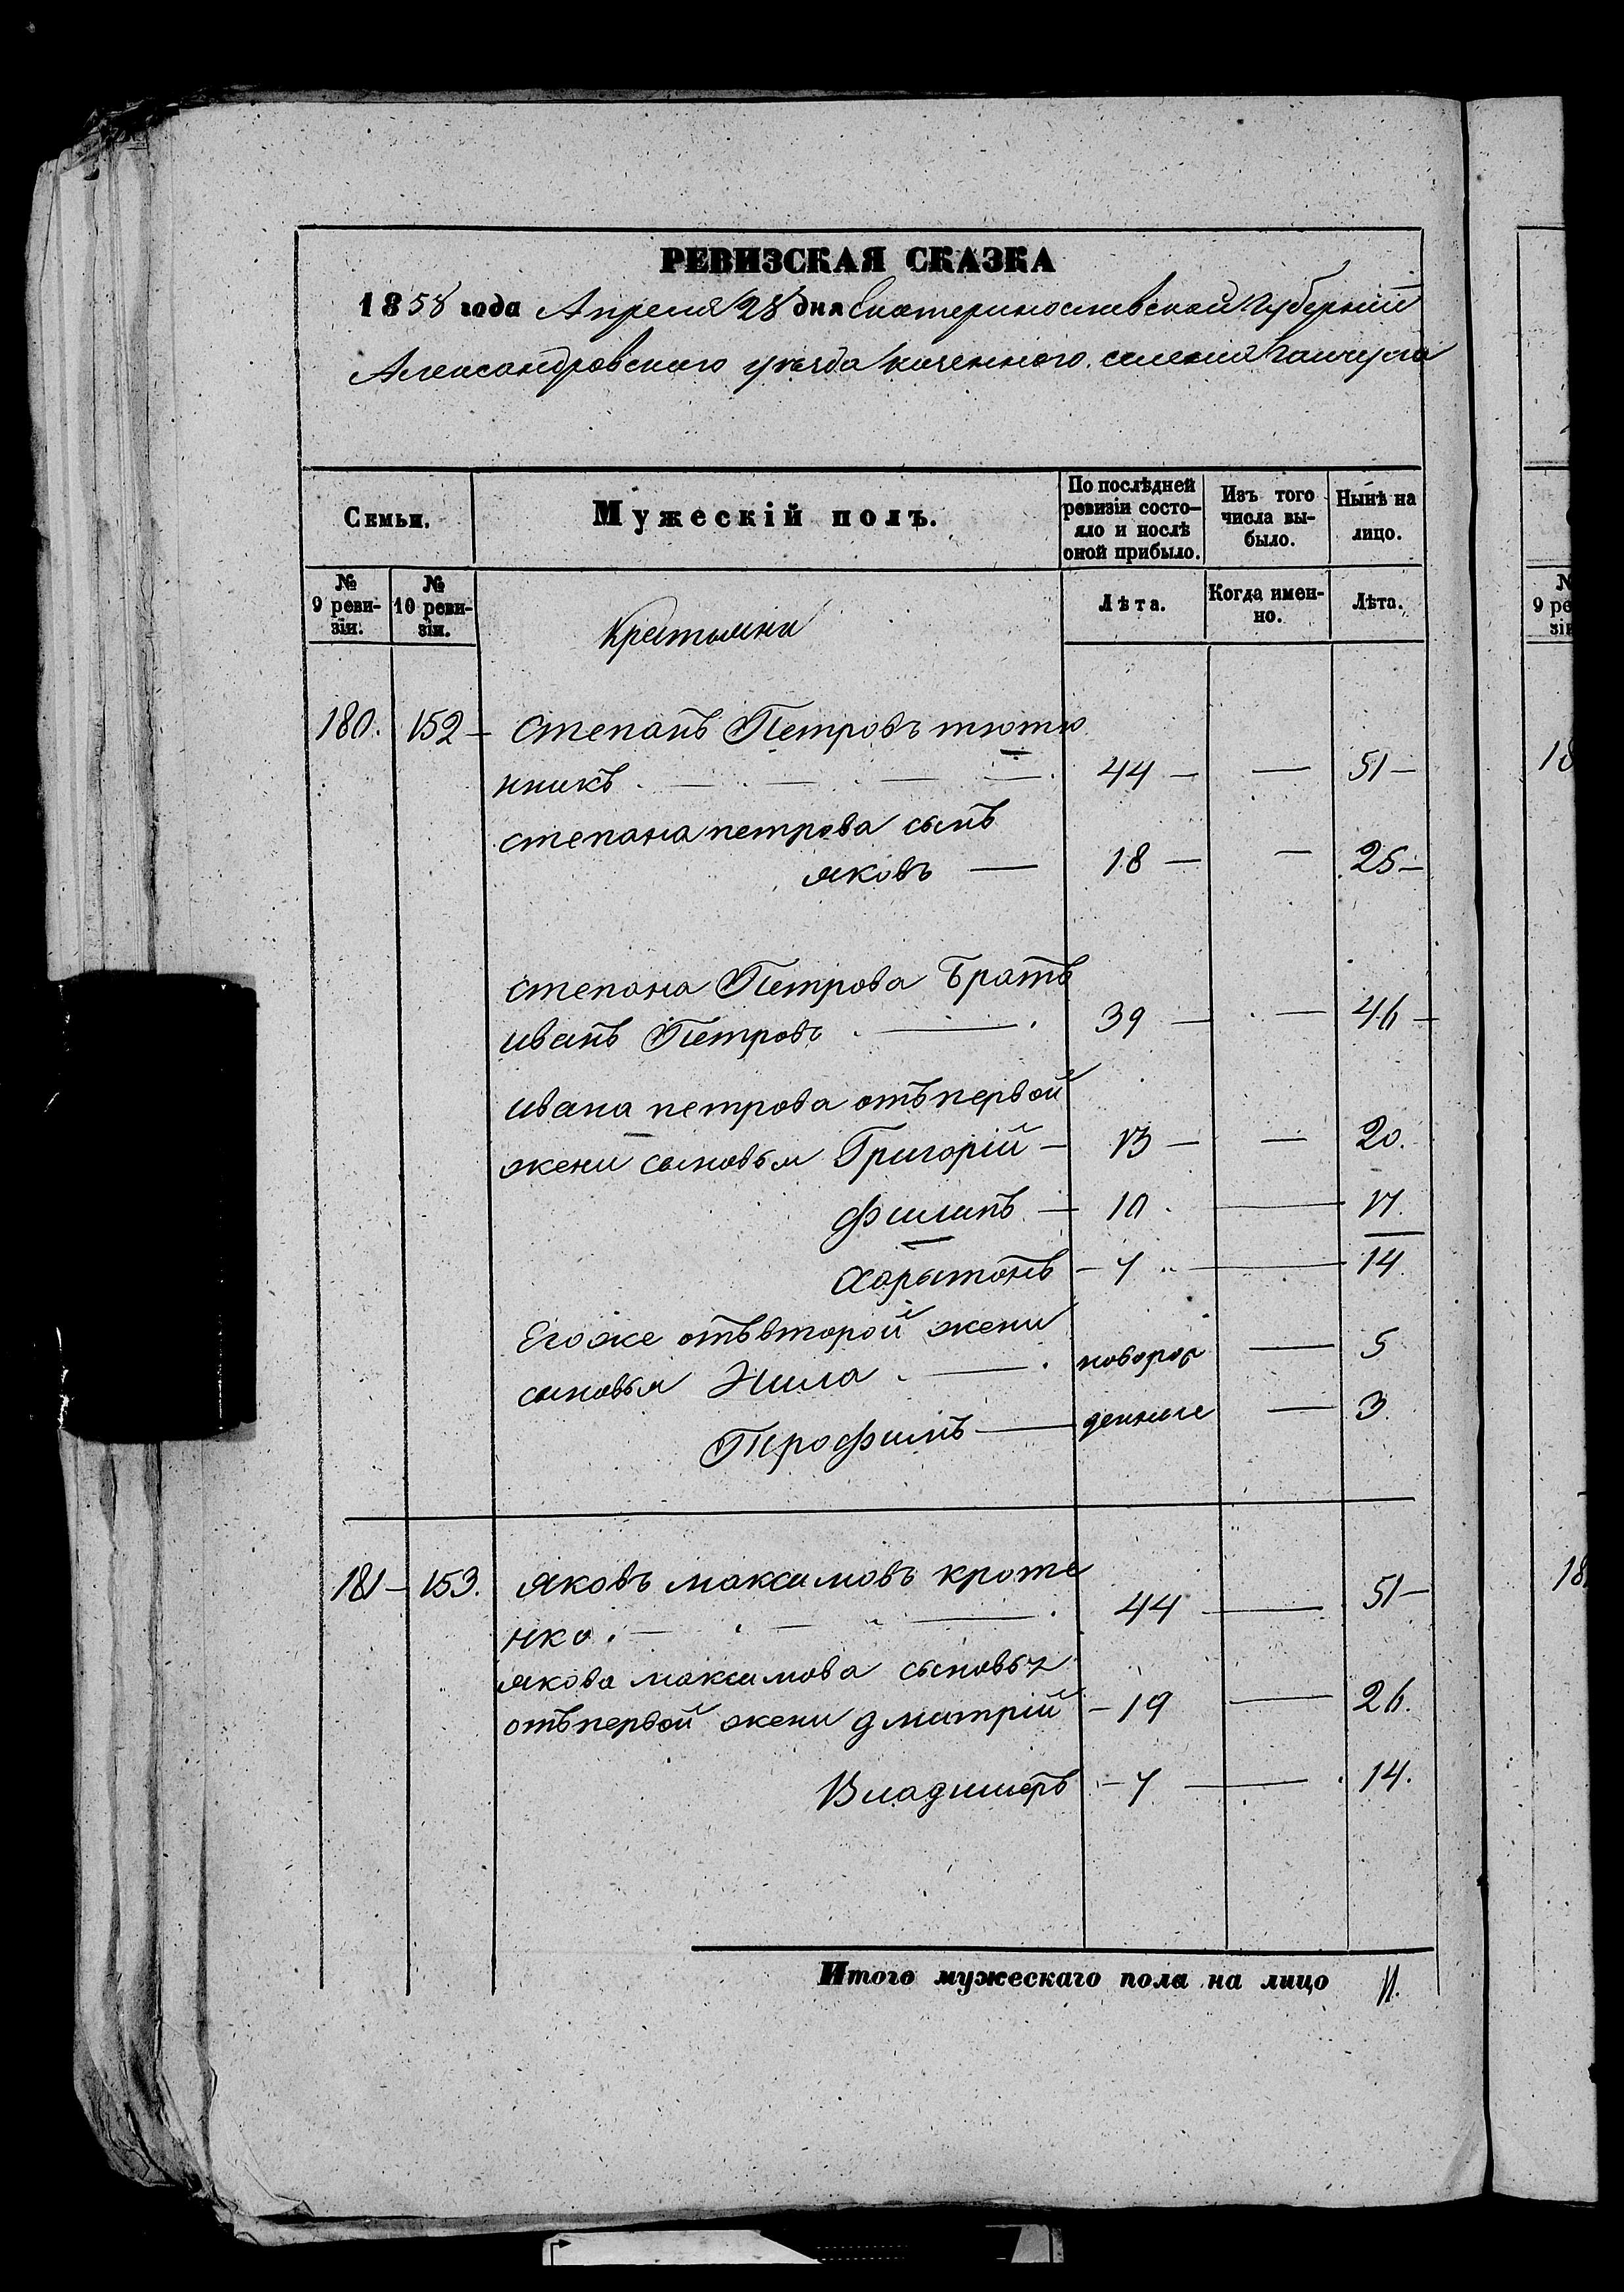 РЕВИЗСКАЯ СКАЗКА
1858 года Апреля 28 дня Екатеринославской Губерніи
Александровского уезда казенного селенія Гайчула
Семьи.
Мужескій полъ.
По послѣдней
ревизіи состо-
яло и послѣ
оной прибыло.
Изъ того
числа вы-
было.
Нынѣ на
лицо.
№
9 реви-
зіи.
№
10 реви-
зіи.
Лѣта.
Когда имен-
но.
Лѣта.
Крестьяни
180. 152 - степанъ Петровъ тютю
нникъ. 44 — — 51 —
степана петрова сынъ
яковъ — 18 — — 25 —
степана Петрова братъ
иванъ Петровъ. — 39 — — 46 —
ивана петрова отъ первой
жени сыновья Григорій — 13 — — 20.
Филипъ — 10. — 17.
Харытонъ — 7 — 14
Егоже отъ второй жени
сыновья — новорож — 5
Трофимъ — денные — 3.
181 - 153. яковъ максимовъ кроте
нко. — 44 — 51 —
якова максимова сыновья
отъ первой жени дмитрій — 19 — 26.
Владимеръ — 7 — 14.
Итого мужескаго пола на лицо 11.
№
9 ре
зіи
18
18